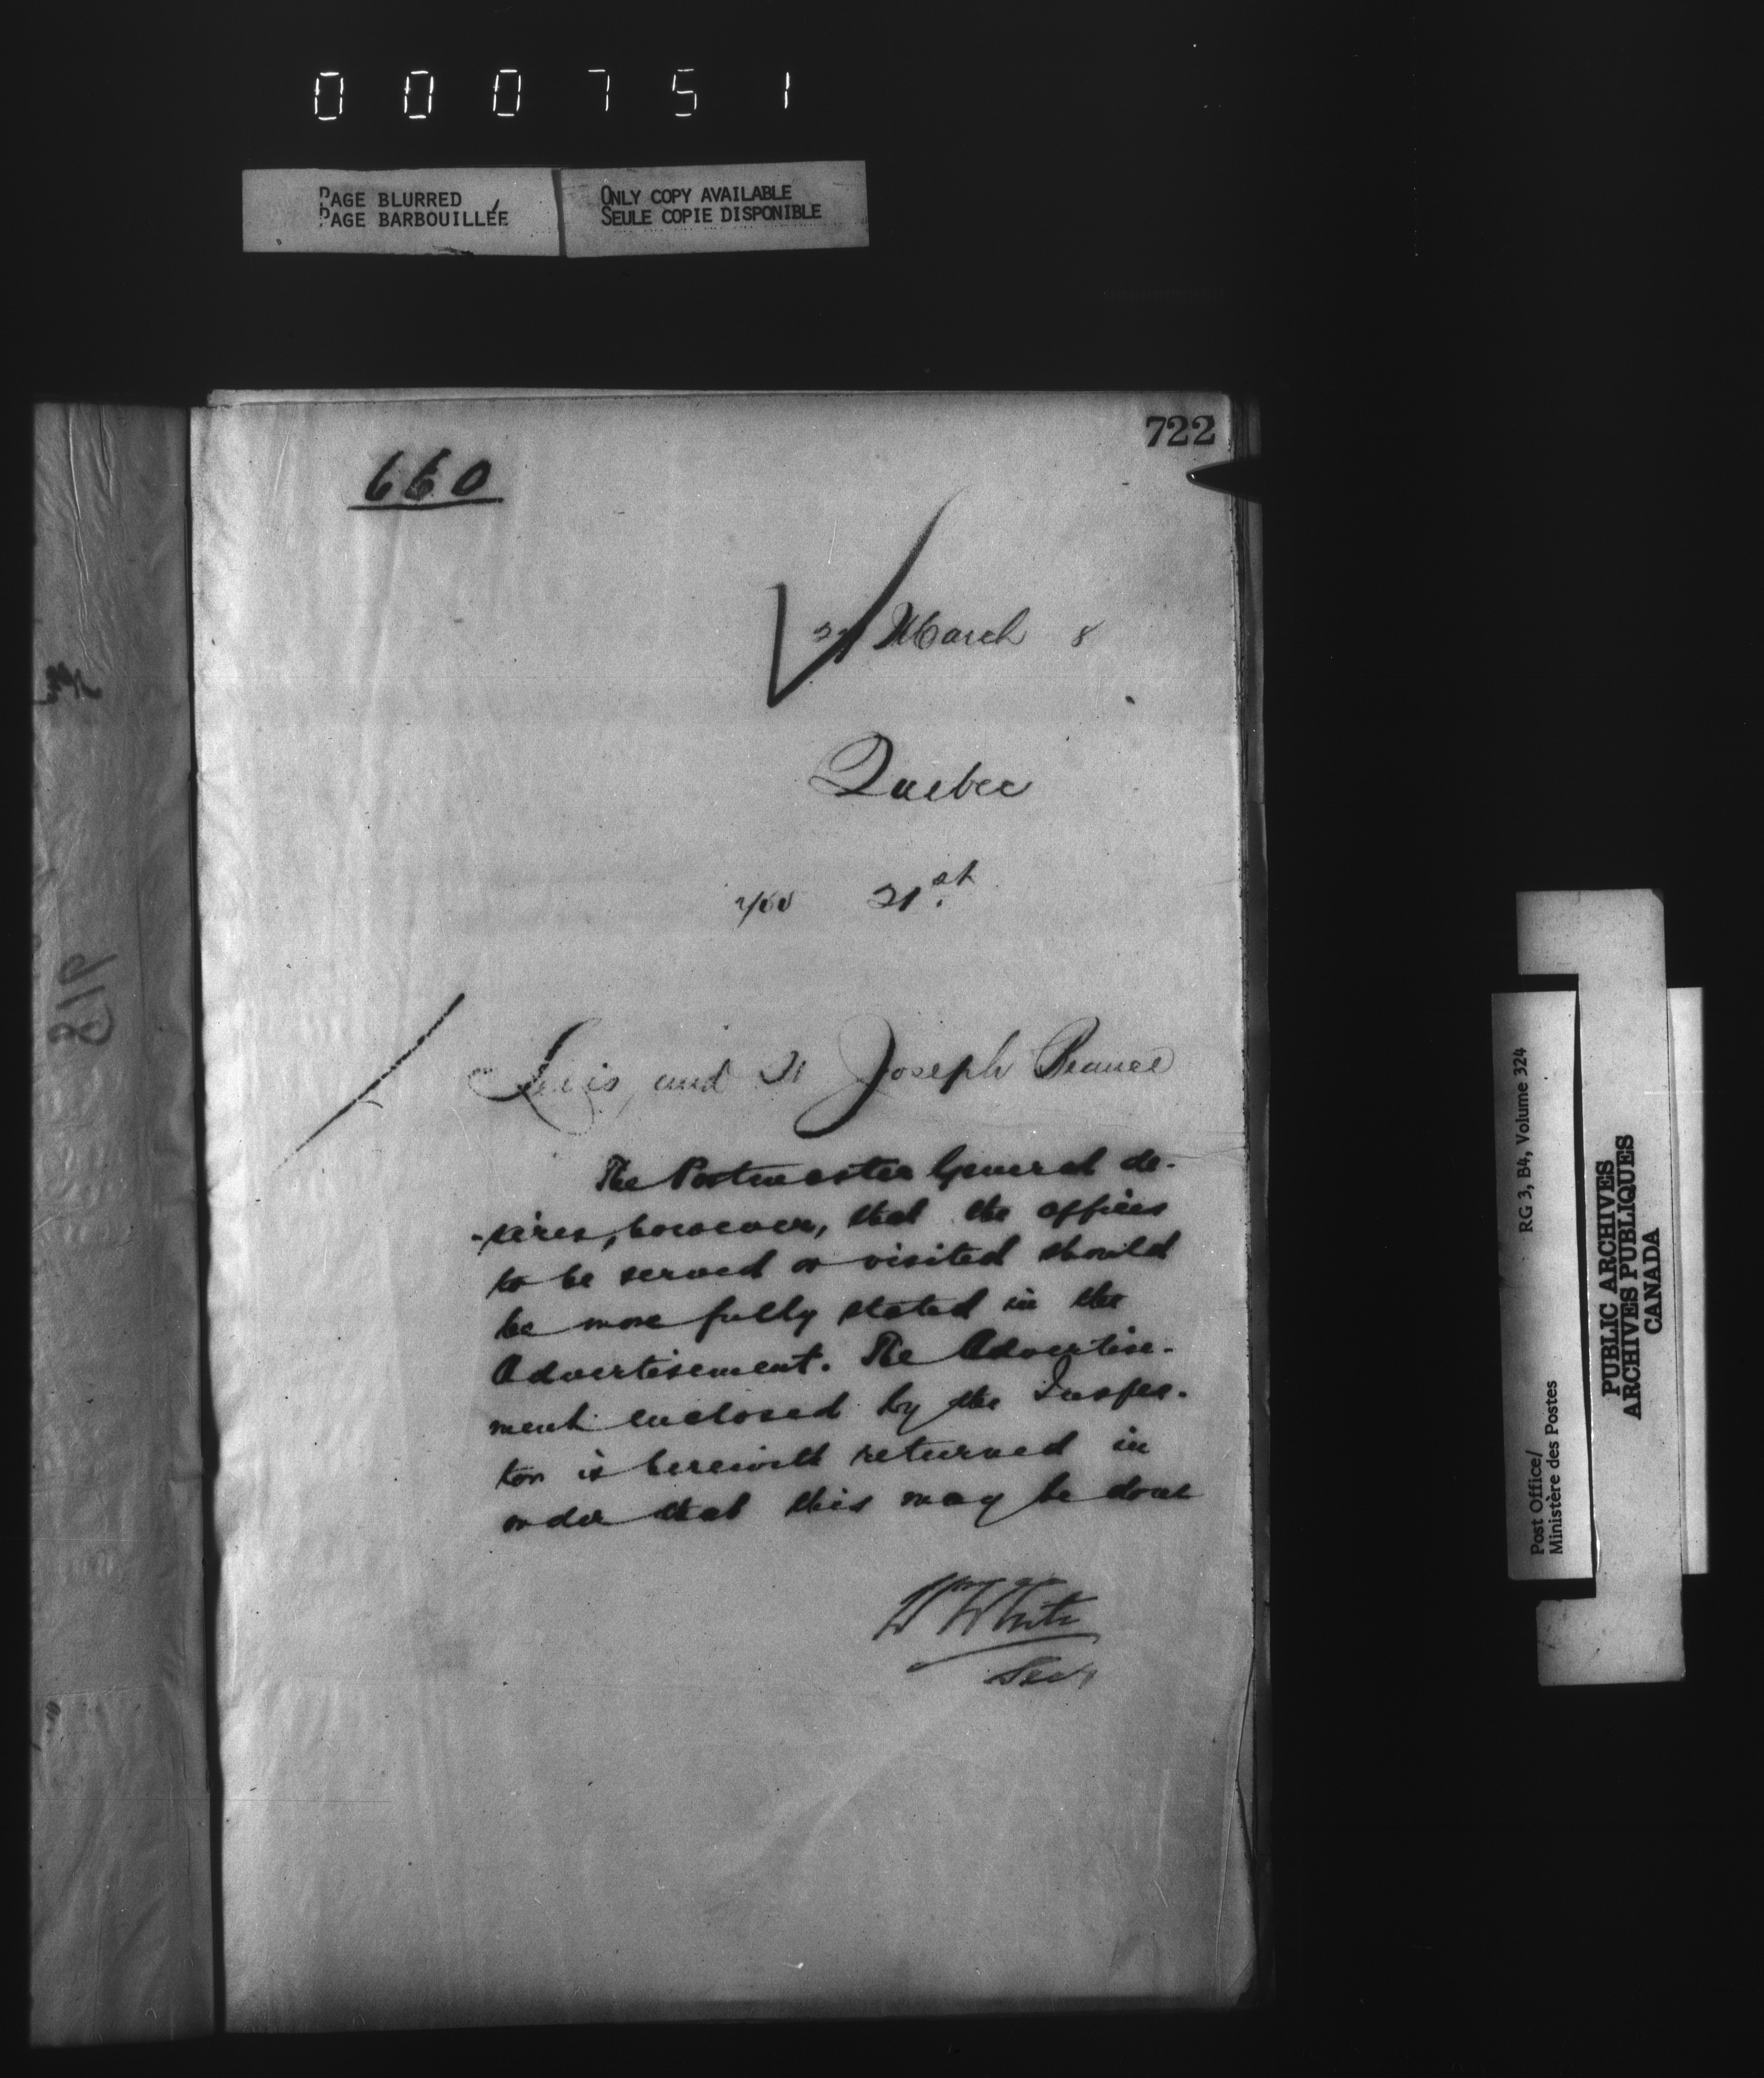 000751
PAGE BLURRED
PAGE BARBOUILLÉE
ONLY COPY AVAILABLE
SEULE COPIE DISPONIBLE
722
660
March 8
Quebec
21st
Levis, and St Joseph Beauce
The Postmaster General de-
-sires, however, that the offices
to be served or visited should
be more fully stated in the
Advertisement. The Advertise-
ment enclosed by the Inspec-
tor is herewith returned in
order that this may be done
W White
Secy
Post Office/
Ministère des Postes
RG 3, B4, Volume 324
PUBLIC ARCHIVES
ARCHIVES PUBLIQUES
CANADA